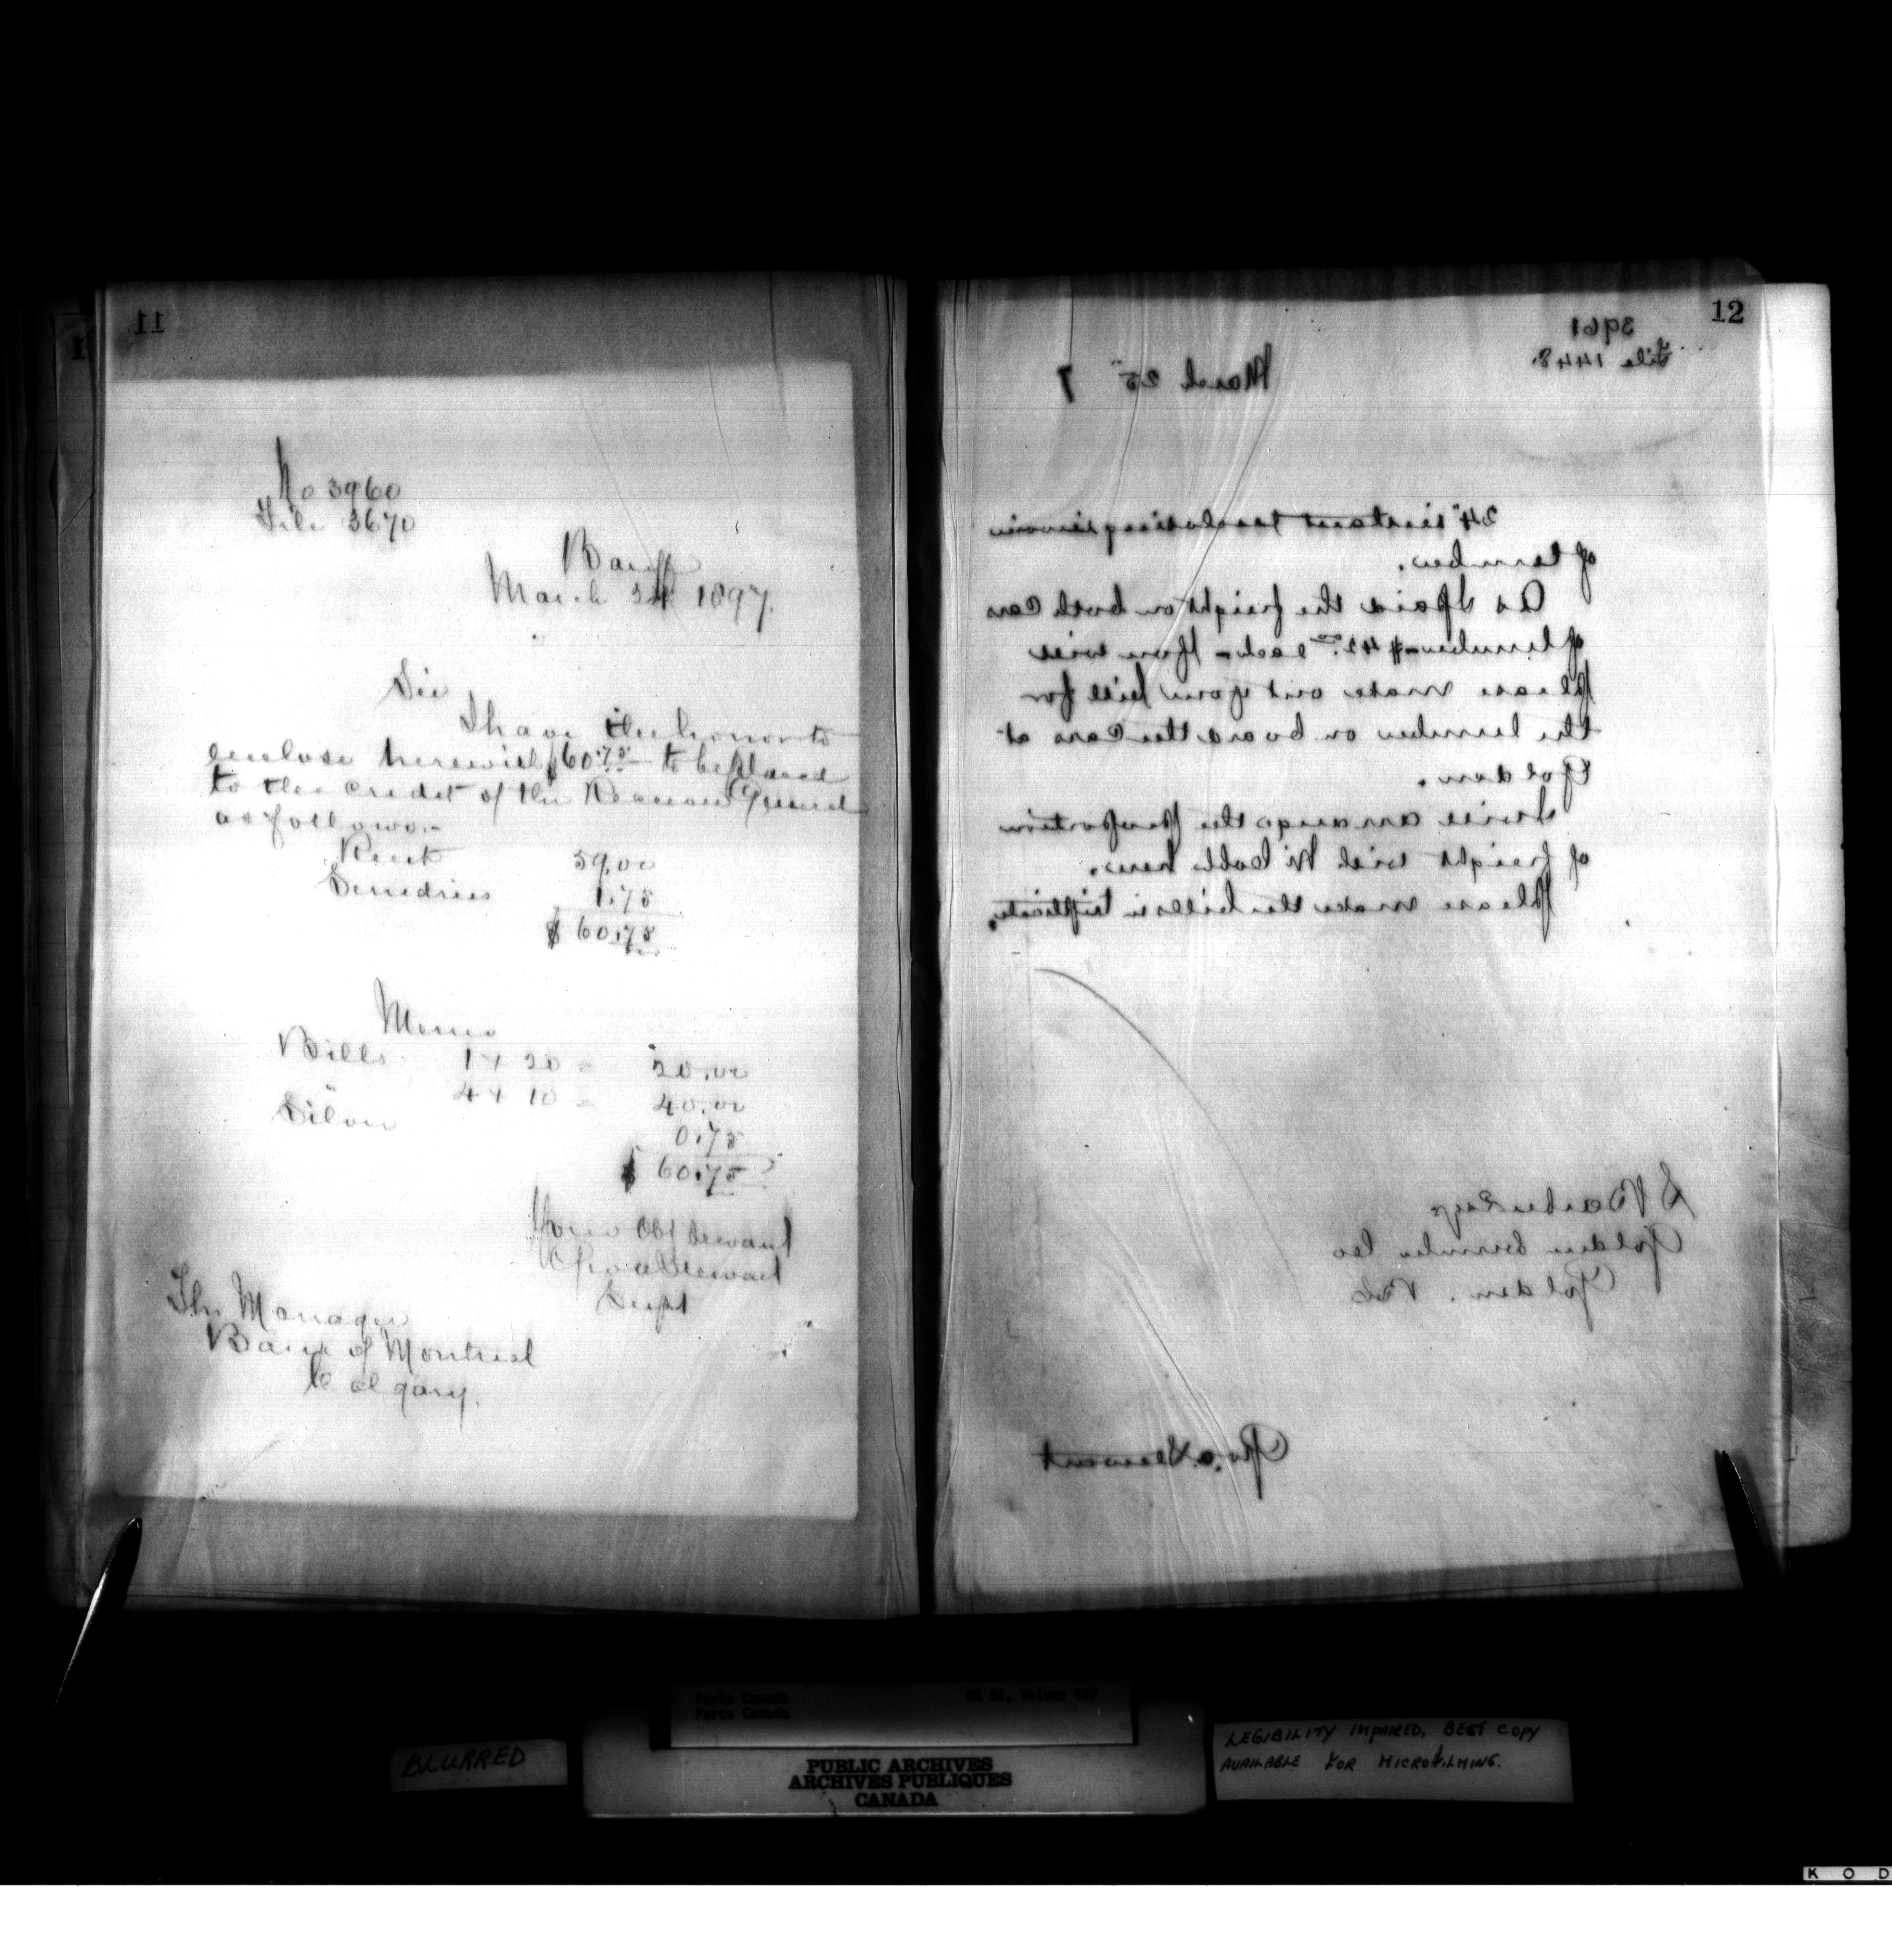 11
No 3960
File 3670
Banff
March 24 1897.
Sir
I have the honor to
enclose herewith $60.75 to be placed
to the credit of the Receiver General
as follows:-
Rent 59.00
Sundries 1.75
$ 60.75
Memo
Bills 1 x 20 = 20.00
4 x 10 = 40.00
Silver
0.75
$ 60.75
Your Obt Servant
Geo. A Stewart
Supt
The Manager
Bank of Montreal
Calgary.
12
3961
File 1448.
March 25" 7
24" instant enclosing invoice
of lumber.
As I paid the freight on both Cars
of lumber - $42.00 each - You will
please make out your bill for
the lumber on board the Cars at
Golden.
I will arrange the proportion
of freight with McColl here.
Please make the bills in triplicate.
S Barber Esqr
Golden Lumber Co
Golden. B.C
Geo. A. Stewart
Parks Canada
Parcs Canada
RG 84, Volume
BLURRED
PUBLIC ARCHIVES
ARCHIVES PUBLIQUES
CANADA
LEGIBILITY IMPAIRED, BEST COPY
AVAILABLE FOR MICROFILMING.
K O D